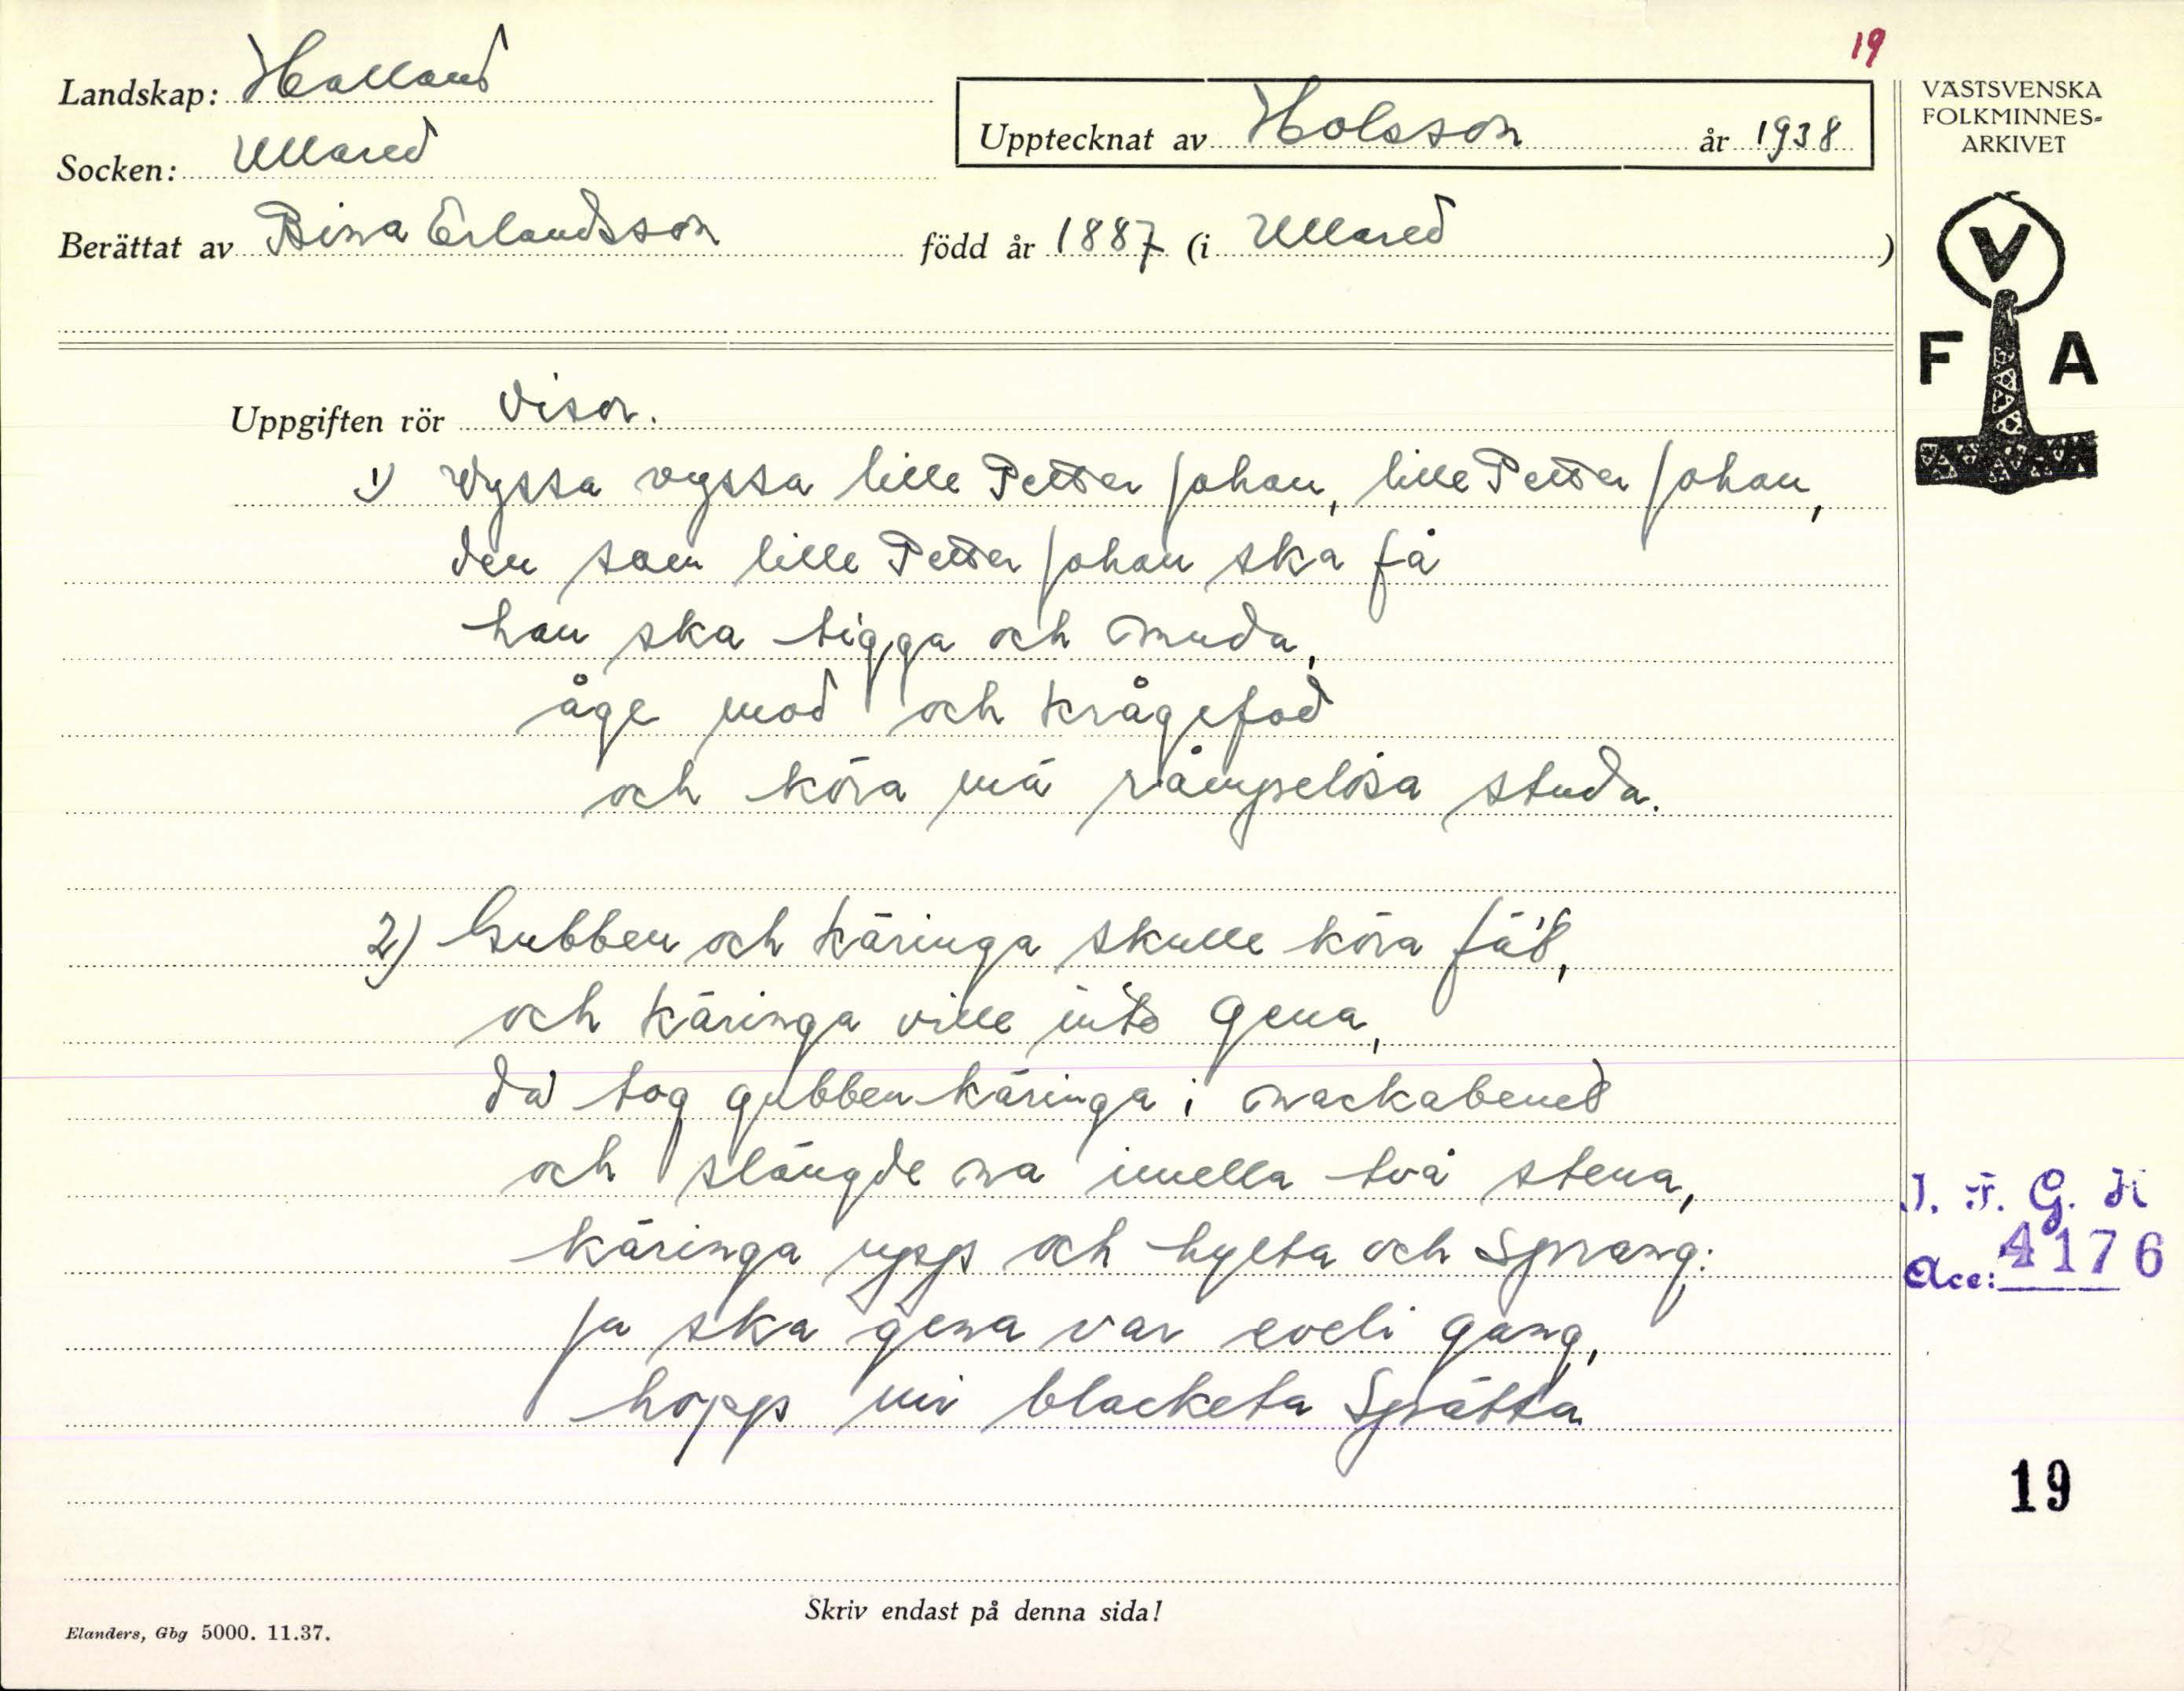 19
Landskap: Halland
Upptecknat av Holsson år 1938
VÄSTSVENSKA
FOLKMINNES-
ARKIVET
Socken: Ullared
Berättat av Bina Erlandsson född år 1887 (i Ullared)
V
F A
Uppgiften rör Visor.
1) Vyssa vyssa lille Petter Johan, lille Petter Johan,
den som lille Petter Johan ska få
han ska tigga och muda,
åge mod och krågefod
och köra mä råmpelösa studa.
2) Gubben och käringa skulle köra fä't,
och käringa ville inte gena,
då tog gubben käringa i nackabenet
och slängde na imella två stena,
käringa upp och hylta och sprang:
ja ska gena var eveli gang,
hopp min blacketa Spätta
I. F. G. H
Acc: 4176
19
Skriv endast på denna sida!
Elanders, Gbg 5000. 11.37.